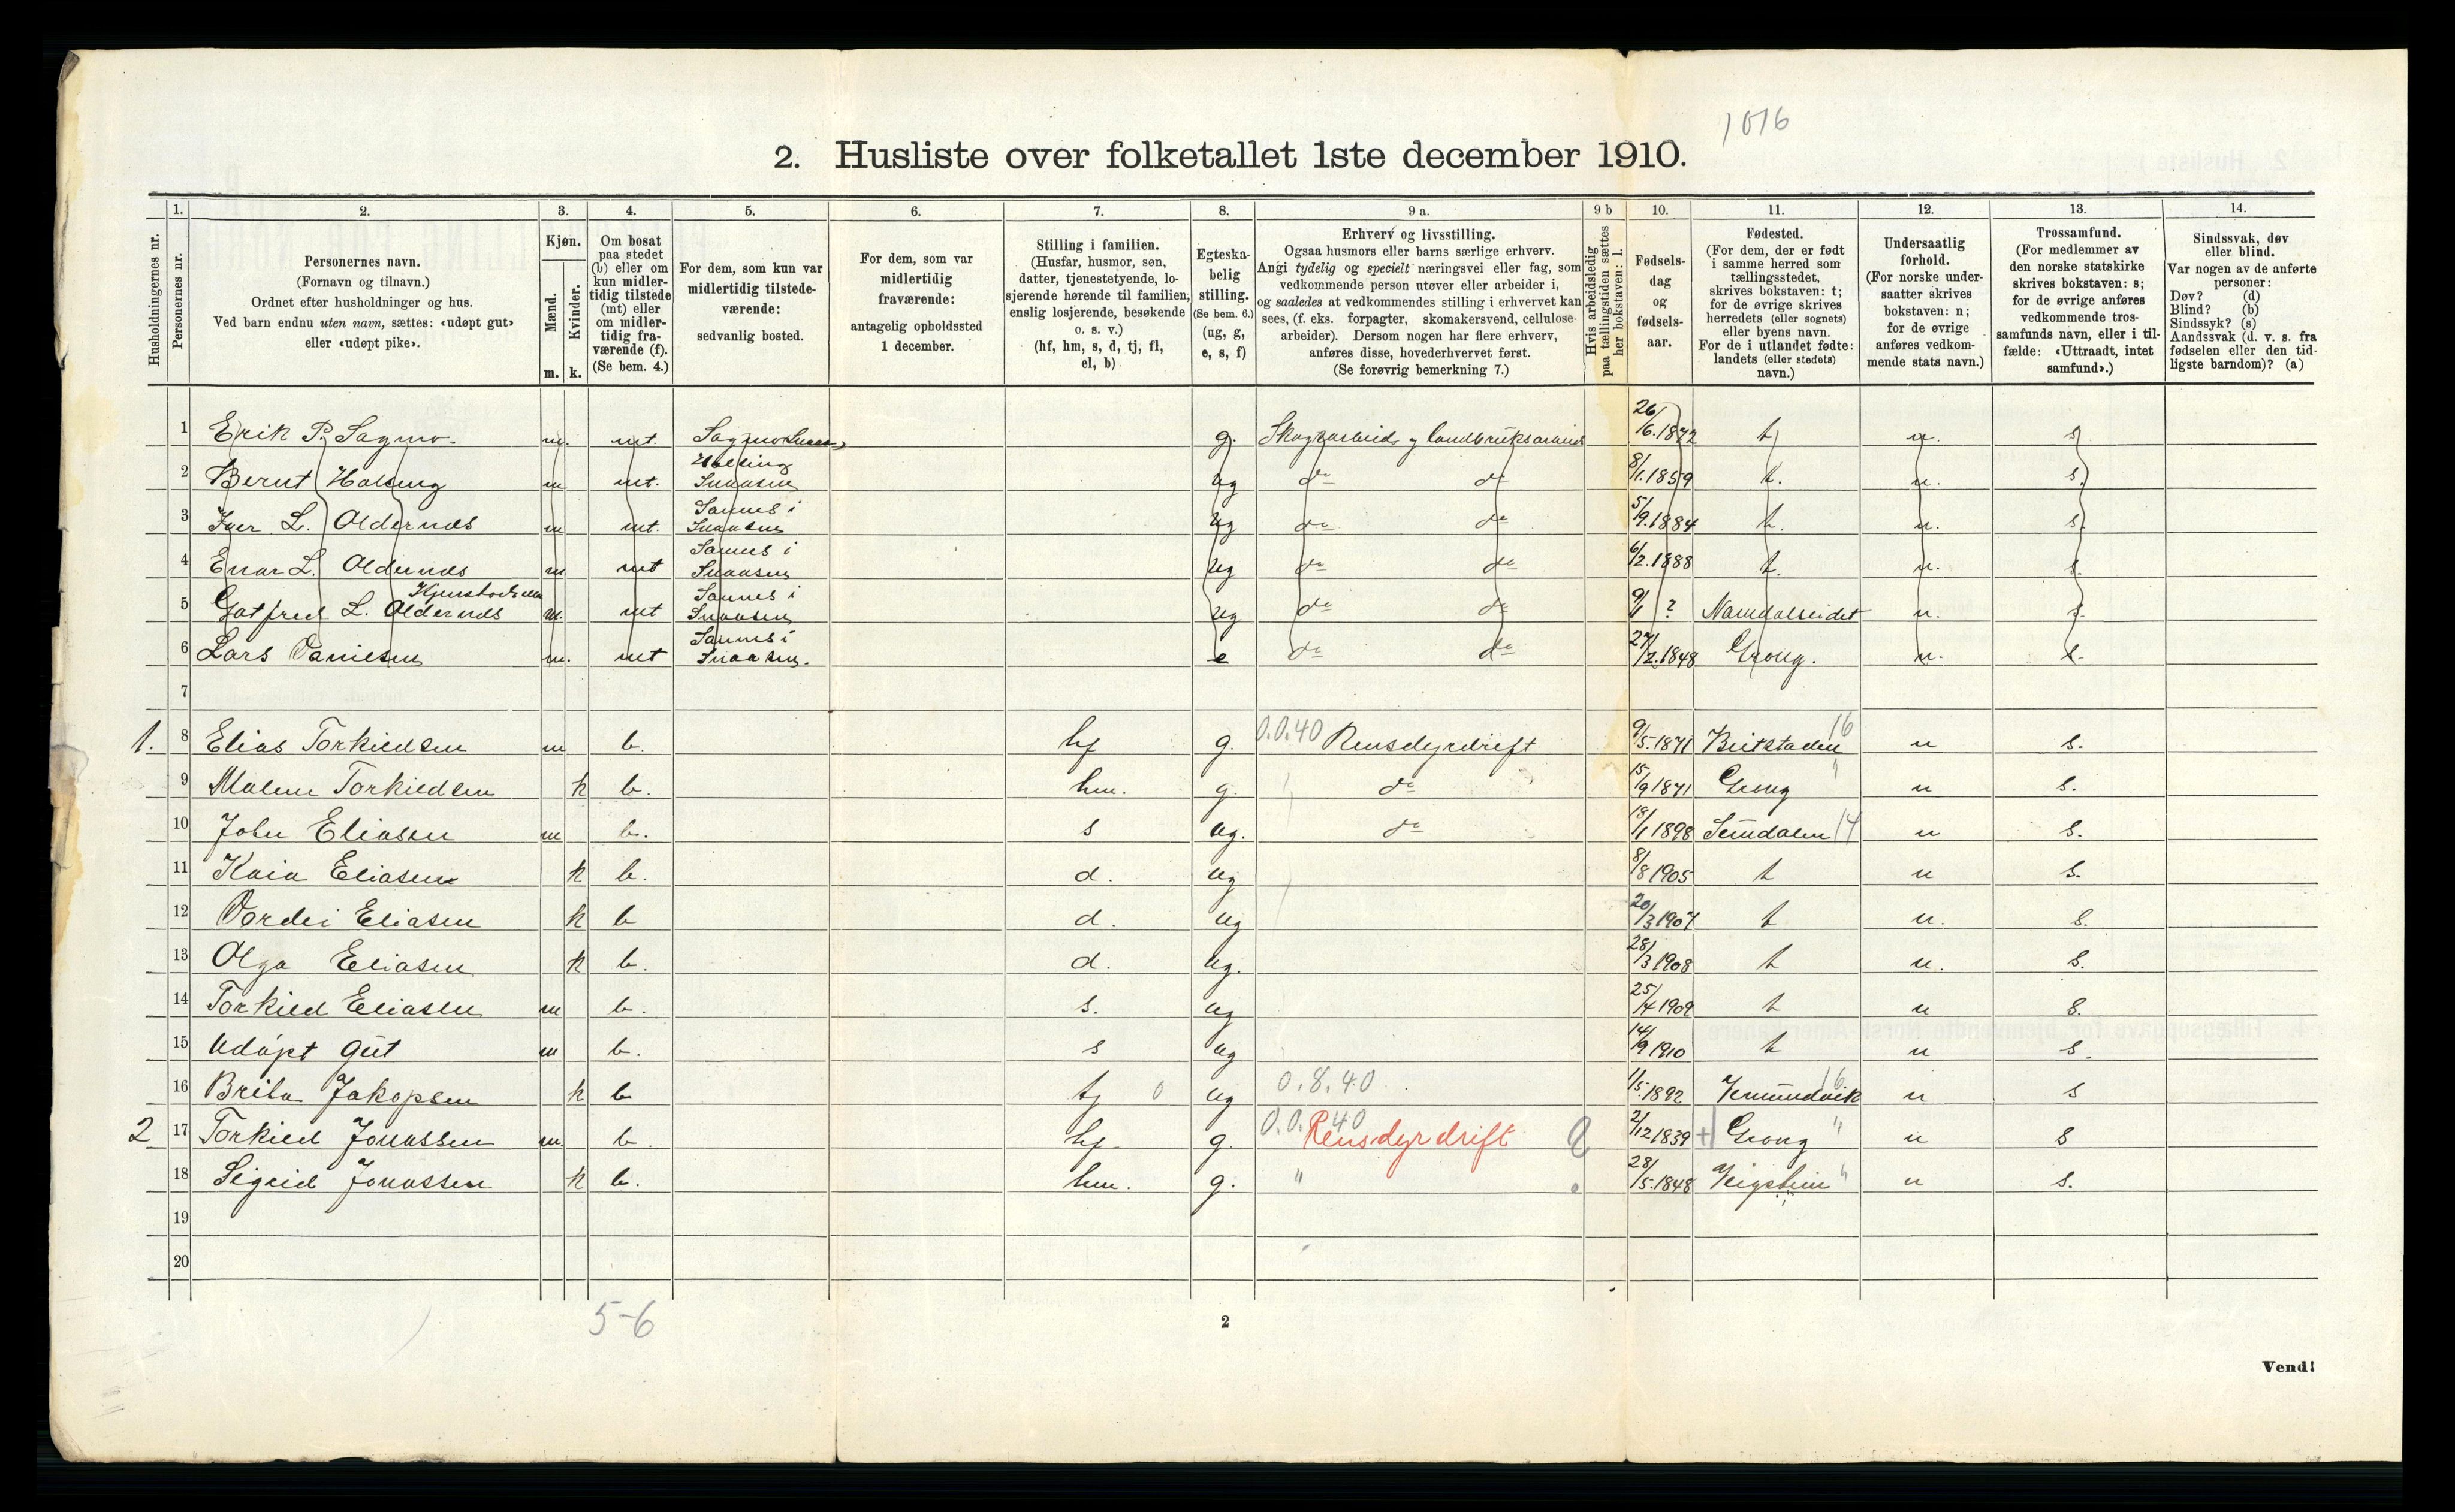 1016
2. Husliste over folketallet 1ste december 1910.
Husholdningernes nr.
1.
Personernes nr.
2.
Personernes navn.
(Fornavn og tilnavn.)
Ordnet efter husholdninger og hus.
Ved barn endnu uten navn, sættes: «udøpt gut»
eller «udøpt pike».
3.
Kjøn.
Mænd.
Kvinder.
m. k.
4.
Om bosat
paa stedet
(b) eller om
kun midler-
tidig tilstede
(mt) eller
om midler-
tidig fra-
værende (f).
(Se bem. 4.)
5.
For dem, som kun var
midlertidig tilstede-
værende:
sedvanlig bosted.
6.
For dem, som var
midlertidig
fraværende:
antagelig opholdssted
1 december.
7.
Stilling i familien.
(Husfar, husmor, søn,
datter, tjenestetyende, lo-
sjerende hørende til familien,
enslig losjerende, besøkende
o. s. v.)
(hf, hm, s, d, tj, fl,
el, b)
8.
Egteska-
belig
stilling.
(Se bem. 6.)
(ug, g,
e, s, f)
9 a.
Erhverv og livsstilling.
Ogsaa husmors eller barns særlige erhverv.
Angi tydelig og specielt næringsvei eller fag, som
vedkommende person utøver eller arbeider i,
og saaledes at vedkommendes stilling i erhvervet kan
sees, (f. eks. forpagter, skomakersvend, cellulose-
arbeider). Dersom nogen har flere erhverv,
anføres disse, hovederhvervet først.
(Se forøvrig bemerkning 7.)
9 b
Hvis arbeidsledig
paa tællingstiden sættes
her bokstaven: l.
10.
Fødsels-
dag
og
fødsels-
aar.
11.
Fødested.
(For dem, der er født
i samme herred som
tællingsstedet,
skrives bokstaven: t;
for de øvrige skrives
herredets (eller sognets)
eller byens navn.
For de i utlandet fødte:
landets (eller stedets)
navn.)
12.
Undersaatlig
forhold.
(For norske under-
saatter skrives
bokstaven: n;
for de øvrige
anføres vedkom-
mende stats navn.)
13.
Trossamfund.
(For medlemmer av
den norske statskirke
skrives bokstaven: s;
for de øvrige anføres
vedkommende tros-
samfunds navn, eller i til-
fælde: «Uttraadt, intet
samfund».)
14.
Sindssvak, døv
eller blind.
Var nogen av de anførte
personer:
Døv? (d)
Blind? (b)
Sindssyk? (s)
Aandssvak (d. v. s. fra
fødselen eller den tid-
ligste barndom)? (a)
1 Erik P. Sagmo. m. mt. Sagmo Snaasen g. Skogsarbeid og landbruksarbeid 26/6.1872 t n. s
2 Bernt Halsing m mt. Halsing Snaasen ug do do 8/1.1859 t. n. s.
3 Iver L. Oldernæs m mt. Sannes i Snaasen ug do do 5/9.1884 t. n. s.
4 Einar L. Oldernæs m mt Sannes i Snaasen ug do do 6/2.1888 t. n. s.
5 Gotfred L. Oldernæs m. mt Sannes i Snaasen ug do do 9/1 ? Namdalseidet n. s.
6 Lars Danielsen m. mt Sannes i Snaasen. e do do 27/2.1848 Grong. n. s.
7
1. 8 Elias Torkildsen m b. hf g. 0.0.40 Rensdyrdrift 9/5.1871 Beitstaden 16 n s.
9 Malene Torkildsen k b. hm. g. do 15/9 1871 Grong " n s.
10 John Eliasen m b. s ug. do 19/1 1898 14 n s.
11 Kaia Eliasen k b. d. ug 8/8 1905 t n s.
12 Dordei Eliasen k b d. ug 20/3 1907 t n. s.
13 Olga Eliasen k b. d. ug. 28/3 1908 t n. s.
14 Torkild Eliasen m b. s. ug 25/4 1909 t n s.
15 Udøpt gut m b. s ug 14/9 1910 t n s.
16 Brita Jakopsen k b tj 0 ug 0.8.40 1/5.1892 16 n s
2 17 Torkild Jonassen m. b. hf. g. 0.0.40 Rensdyrdrift 2/12 1839 Grong " n s
18 Sigrid Jonassen k b. hm. g. " 28/5.1848 " n s.
19
20
5-6
2
Vend!